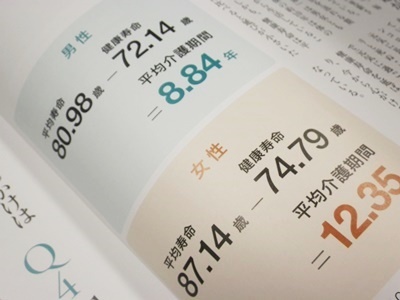 男性
平均寿命 健康寿命
80.98歳－72.14歳
平均介護期間
＝8.84年
女性
平均寿命 健康寿命
87.14歳－74.79歳
平均介護期間
＝12.35
かけは
Q4